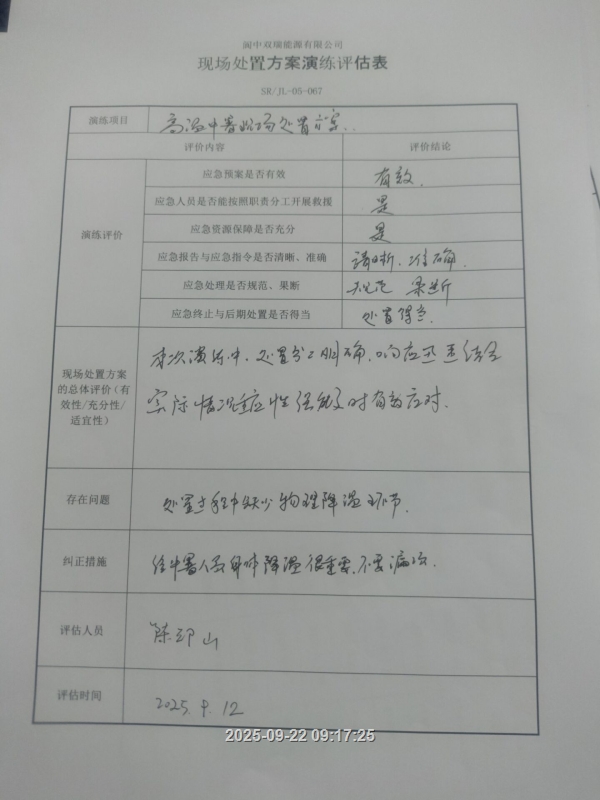 阆中双瑞能源有限公司
现场处置方案演练评估表
SR/JL-05-067
演练项目 高温中暑现场处置方案
评价内容 评价结论
演练评价
应急预案是否有效 有效.
应急人员是否能按照职责分工开展救援 是
应急资源保障是否充分 是
应急报告与应急指令是否清晰、准确 清晰、准确.
应急处理是否规范、果断 规范 果断
应急终止与后期处置是否得当 处置得当.
现场处置方案的总体评价（有效性/充分性/适宜性）
本次演练中,处置分工明确,响应迅速结合
实际情况适应性强能及时有效应对.
存在问题 处置过程中缺少物理降温环节.
纠正措施 给中暑人员身体降温很重要,不要漏项.
评估人员 陈印山
评估时间 2025.9.12
2025-09-22 09:17:25